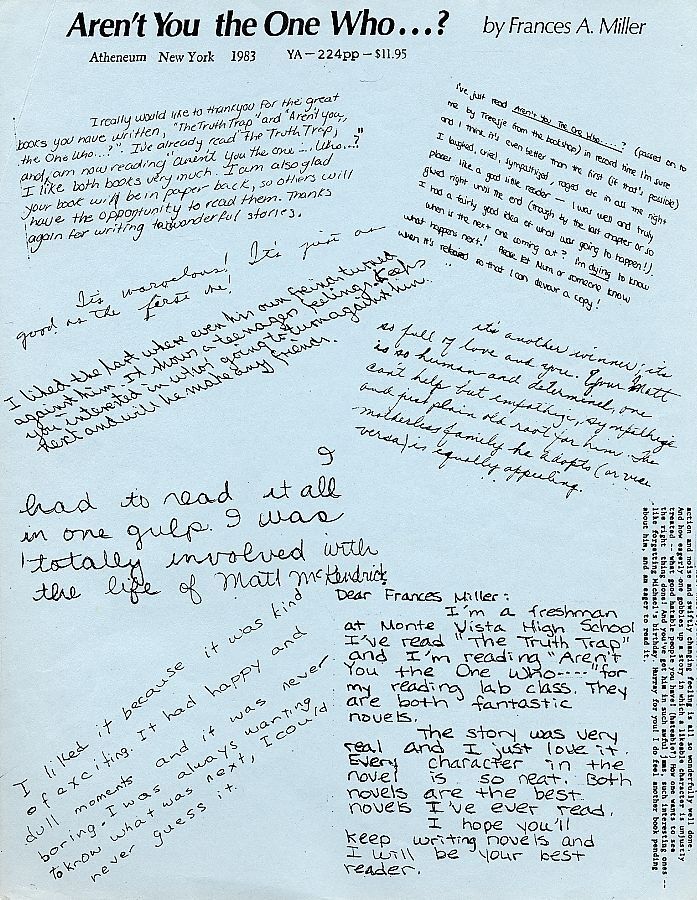 Aren't You the One Who...? by Frances A. Miller
Atheneum New York 1983 YA-224pp-$11.95
I really would like to thankyou for the great
books you have written, "The Truth Trap" and "Aren't you,
the One Who...?". I've already read "The Truth Trap,
and, am now reading "aren't you the one ... Who...?"
I like both books very much. I am also glad
your book will be in paper back, so others will
have the opportunity to read them. Thanks
again for writing two wonderful stories.
I've just read Aren't You The One Who.....? (passed on to
me by Treesje from the bookshop) in record time I'm sure
and I think it's even better than the first (if that's possible)
I laughed, cried, sympathized, raged etc in all the right
places like a good little reader – I was well and truly
glued right until the end (though by the last chapter or so
I had a fairly good idea of what was going to happen!).
When is the next one coming at? I'm dying to know
what happens next! Please let Mum or someone know
when it's released so that I can devour a copy!
It's marvelous! It's just as
good as the first one!
I liked the part where even his own freind turned
against him. It shows a teenagers feelings. Keeps
you interested in whos going to turn against him
next and will he make any friends.
it's another winner; it's
so full of love and you. Your Matt
is so human and determined, one
can't help but empathize, sympathize
and just plain old root for him. The
motherless family he adopts (or vice
versa) is equally appealing.
I
had to read it all
in one gulp. I was
totally involved with
the life of Matt McKendrick
action and noise and swiftly changing feeling is all so wonderfully well done.
And how eagerly one gobbles up a story in which a likeable character is unjustly
treated -- what good hatable people you have! (hateable?) How one wants to see
the right thing done! And you've got him in such awful jams, such interesting ones --
like forgetting Michael's birthday. Hurray for you! I do feel another book pending
about him, and am eager to read it.
I liked it because it was kind
of exciting. It had happy and
dull moments and it was never
boring. I was always wanting
to know what was next, I could
never guess it.
Dear Frances Miller:
I'm a freshman
at Monte Vista High School
I've read "The Truth Trap"
and I'm reading "Aren't
You the One Who----" for
my reading lab class. They
are both fantastic
novels.
The story was very
real and I just love it.
Every character in the
novel is so neat. Both
novels are the best
novels I've ever read.
I hope you'll
keep writing novels and
I will be your best
reader.